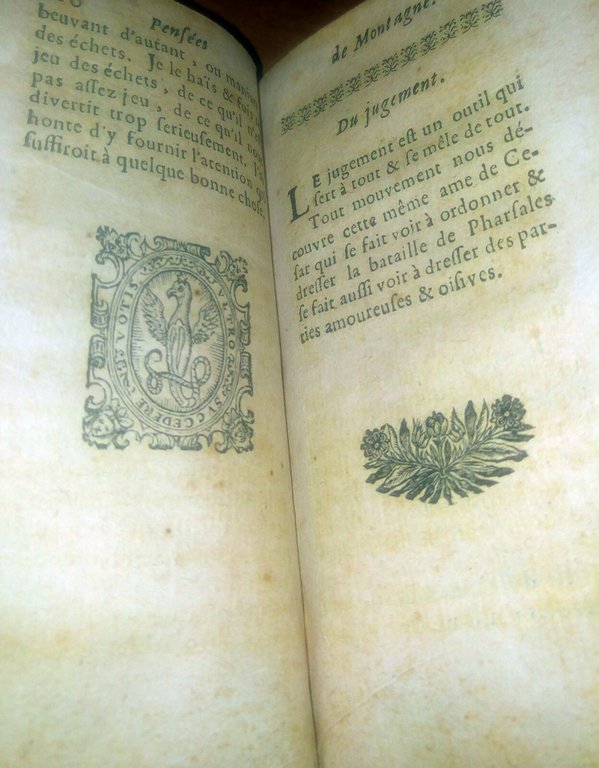 Pensées
beuvant d'autant, ou
des échets. Je le haïs & fuis
jeu des échets, de ce qu'il n'est
pas assez jeu, & de ce qu'il nous
divertit trop serieusement. J'ai
honte d'y fournir l'atention qui
suffiroit à quelque bonne chose.
de Montagne.
Du jugement.
LE jugement est un outil qui
sert à tout & se mêle de tout.
Tout mouvement nous dé-
couvre cette même ame de Ce-
sar qui se fait voir à ordonner &
dresser la bataille de Pharsales
se fait aussi voir à dresser des par-
ties amoureuses & oisives.